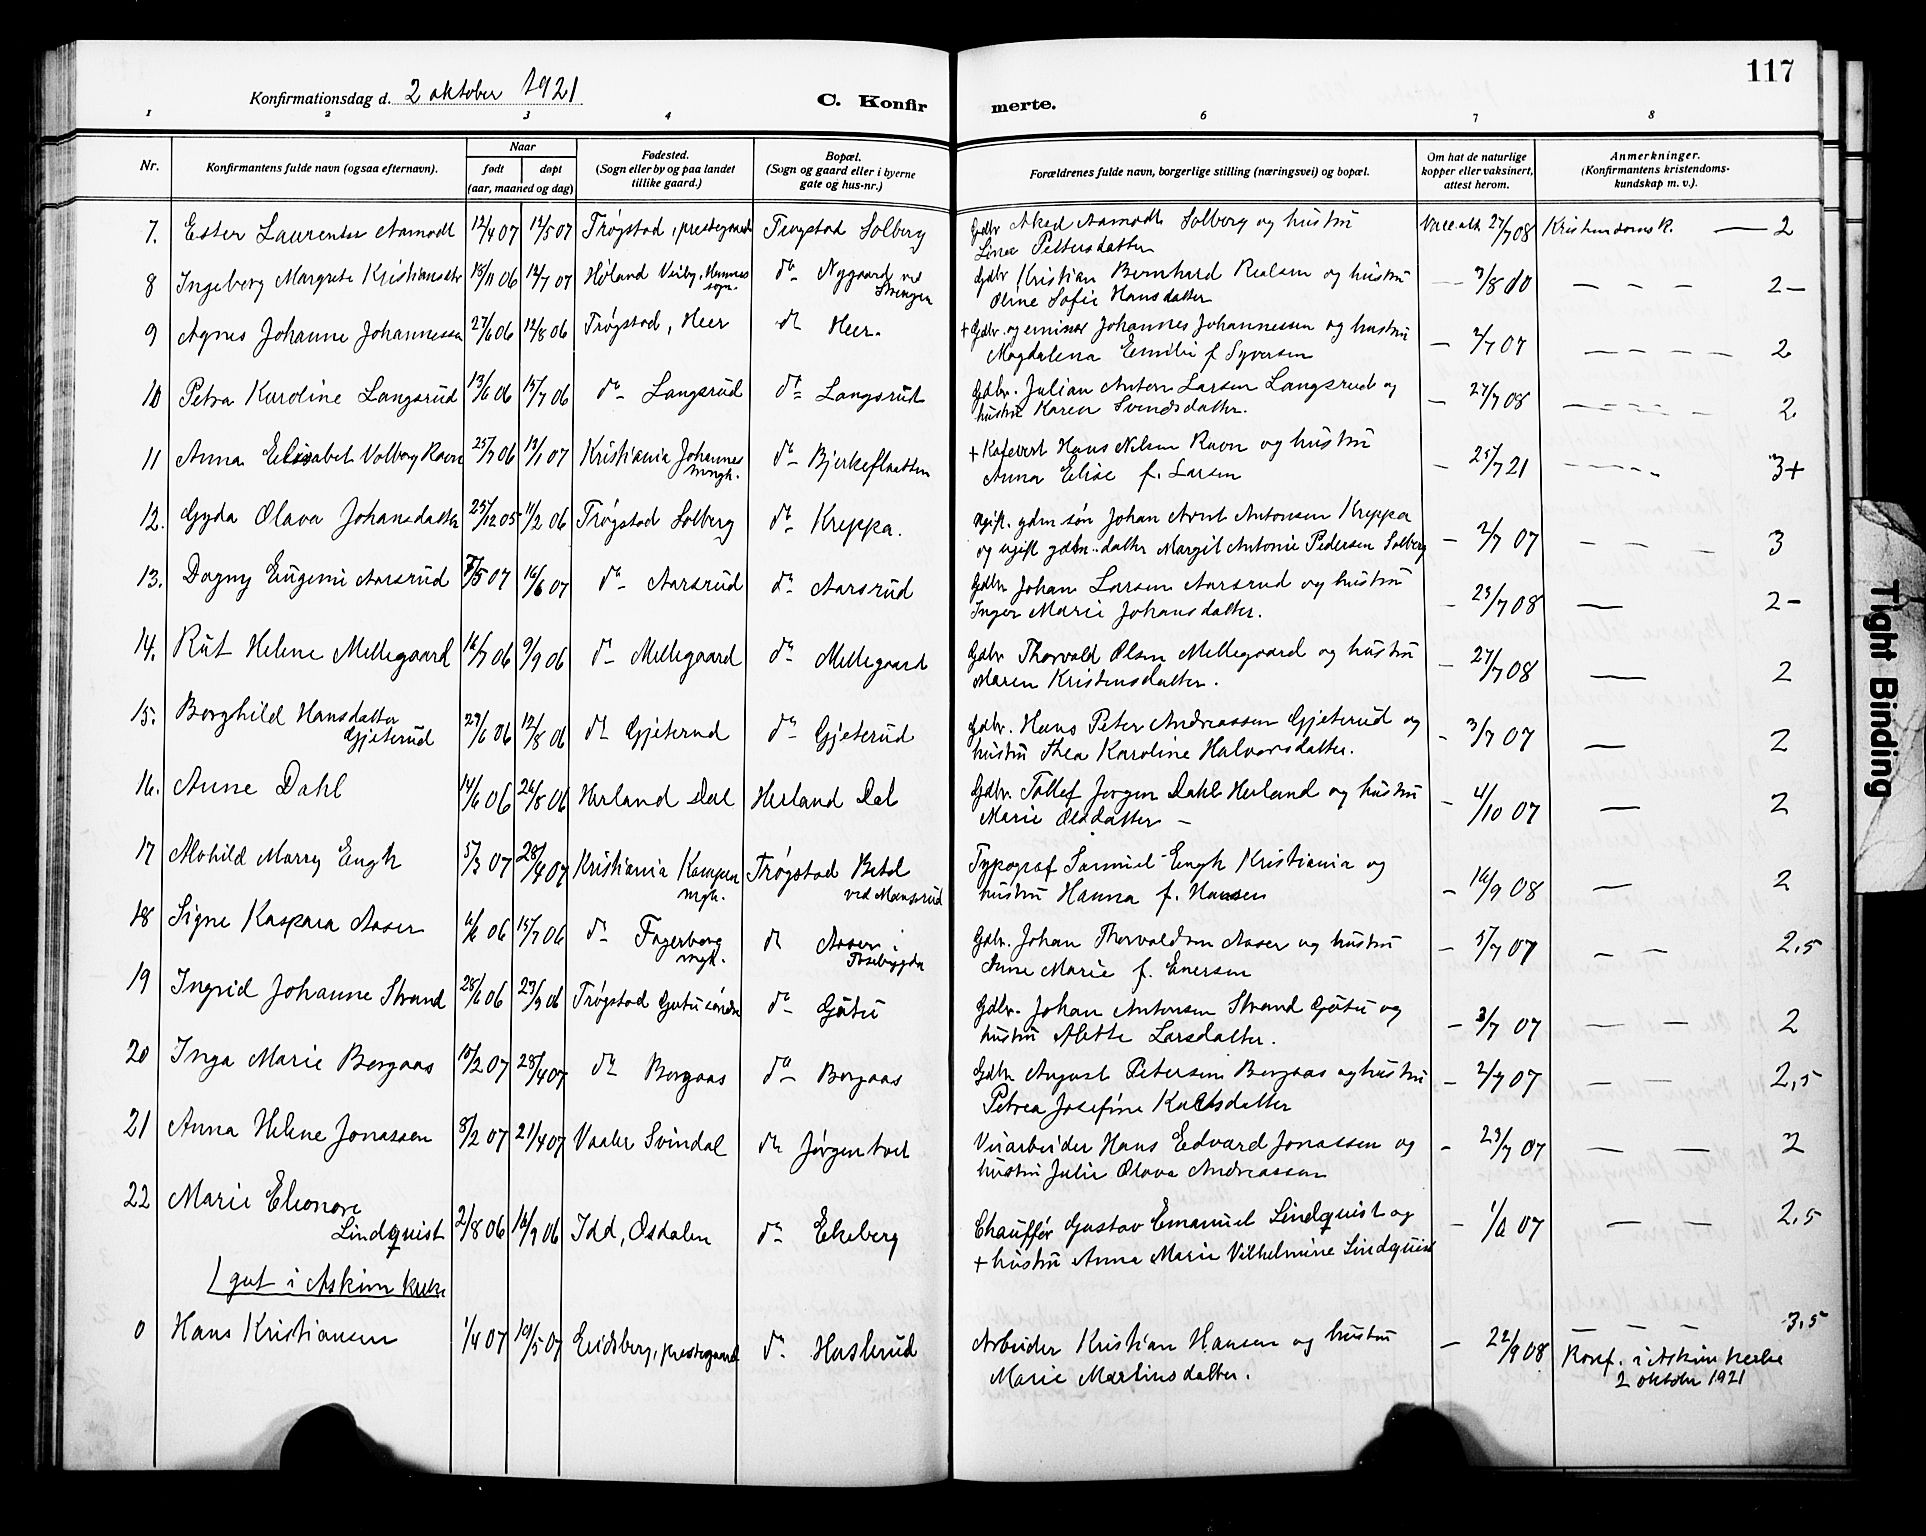 117
Konfirmationsdag d. 2 oktober 1921
C. Konfirmerte.
1 2 3 4 6 7 8
Nr.
Konfirmantens fulde navn (ogsaa efternavn).
Naar
født
døpt
(aar, maaned og dag)
Fødested.
(Sogn eller by og paa landet
tillike gaard.)
Bopæl.
(Sogn og gaard eller i byerne
gate og hus-nr.)
Forældrenes fulde navn, borgerlige stilling (næringsvei) og bopæl.
Om hat de naturlige
kopper eller vaksinert,
attest herom.
Anmerkninger.
(Konfirmantens kristendoms-
kundskap m. v.).
7. Ester Laurentse Aamodt 12/4 07 12/5 07 Trøgstad, prestegaard Trøgstad Solberg Gdbr Aamodt Solberg og hustru 27/7 08 Kristendomsk. — 2
Lina Pettersdatter
8 Ingeborg Margrete Kristiansdtr 13/11 06 14/7 07 Høland Veiby, Hemnes dº Nygaard ved Gdbr Kristian Bernhard Realsen og hustru — 3/8 — — — 2-
sogn. Strengen Oline Sofie Hansdatter
9 Agnes Johanne Johannessen 27/6 06 12/8 06 Trøgstad, Heer dº Heer. + Gdbr. og Johannes Johannessen og hustru — 2/7 07 — — — — 2
Magdalena Emilie f. Syversen
10 Petra Karoline Langsrud 13/6 06 15/7 06 dº Langsrud dº Langsrud Gdbr. Julian Anton Larsen Langsrud og — 27/7 08 — — — — 2
hustru Karen Svendsdatter.
11 Anna Elisabet Volborg Ravn 25/7 06 13/1 07 Kristiania Johannes dº Bjerkeflaatten + Kafevert Hans Nilsen Ravn og hustru — 25/7 21 — — — — 3+
mngh. Anna Elise f. Larsen
12. Gyda Olava Johansdatter 25/12 05 11/2 06 Trøgstad Solberg dº Kreppa. Ugift. gdbr. søn Johan Arnt Antonsen Kreppa — 2/7 07 — — — 3
og ugift gdbr. datter Margit Antonie Pedersen Solberg
13. Dagny Eugenie Aarsrud 7/5 07 16/6 07 dº Aarsrud dº Aarsrud Gdbr Johan Larsen Aarsrud og hustru — 23/7 08 — 2-
Inger Marie Johansdatter.
14. Rut Helene Mellegaard 16/7 06 9/9 06 dº Mellegaard dº Mellegaard Gdbr Thorvald Olsen Mellegaard og hustru — 27/7 08 — 2
Maren Kristensdatter.
15. Borghild Hansdatter 29/6 06 12/8 06 dº Gjeterud dº Gjeterud Gdbr. Hans Peter Andreassen Gjeterud og — 3/7 07 — 2
Gjeterud hustru Thea Karoline Halvorsdatter.
16. Anne Dahl 14/6 06 26/8 06 Herland Dal Herland Dal Gdbr. Tollef Jørgen Dahl Herland og hustru — 4/10 07 — 2
Marie Olsdatter —
17 Alvhild Marry Engh 5/3 07 28/4 07 Kristiania Kampen Trøgstad Betel Typograf Samuel Engh Kristiania og — 16/9 08 — 2
mgh. ved Mansrud hustru Hanna f. Hansen
18 Signe Kaspara Aaser 6/6 06 15/7 06 dº Fagerborg dº Aaser i Gdbr. Johan Thorvaldsen Aaser og hustru — 5/7 07 — — 2,5
mgh. Båsebygda Anne Marie f. Enersen
19 Ingrid Johanne Strand 28/6 06 23/9 06 Trøgstad Gutu søndre dº Gutu Gdbr. Johan Antonsen Strand Gutu og — 3/7 07 — — 2
hustru Alette Larsdatter.
20 Inga Marie Bergaas 10/2 07 28/4 07 dº Bergaas dº Bergaas Gdbr August Petersen Bergaas og hustru — 2/7 07 — — 2,5
Petrea Josefine Karlsdatter
21 Anna Helene Jonassen 8/2 07 21/4 07 Vaaler Svindal dº Jørgentvet Veiarbeider Hans Edvard Jonassen og — 23/7 07 — — 2
hustru Julie Olava Andreassen
22 Marie Eleonore
Lindquist 2/8 06 16/9 06 Idd, Osdalen dº Ekeberg Chauffør Gustav Emanuel Lindquist og — 1/6 07 — — 2,5
+ hustru Anna Marie Vilhelmine Lindquist
1 gut i Askim kirke
0 Hans Kristiansen 1/4 07 10/5 07 Eidsberg, prestegaard dº Haslerud Arbeider Kristian Hansen og hustru — 22/9 08 — — — 3,5
Marie Martinsdatter. Konf. i Askim kirke
2 oktober 1921
Tight Binding